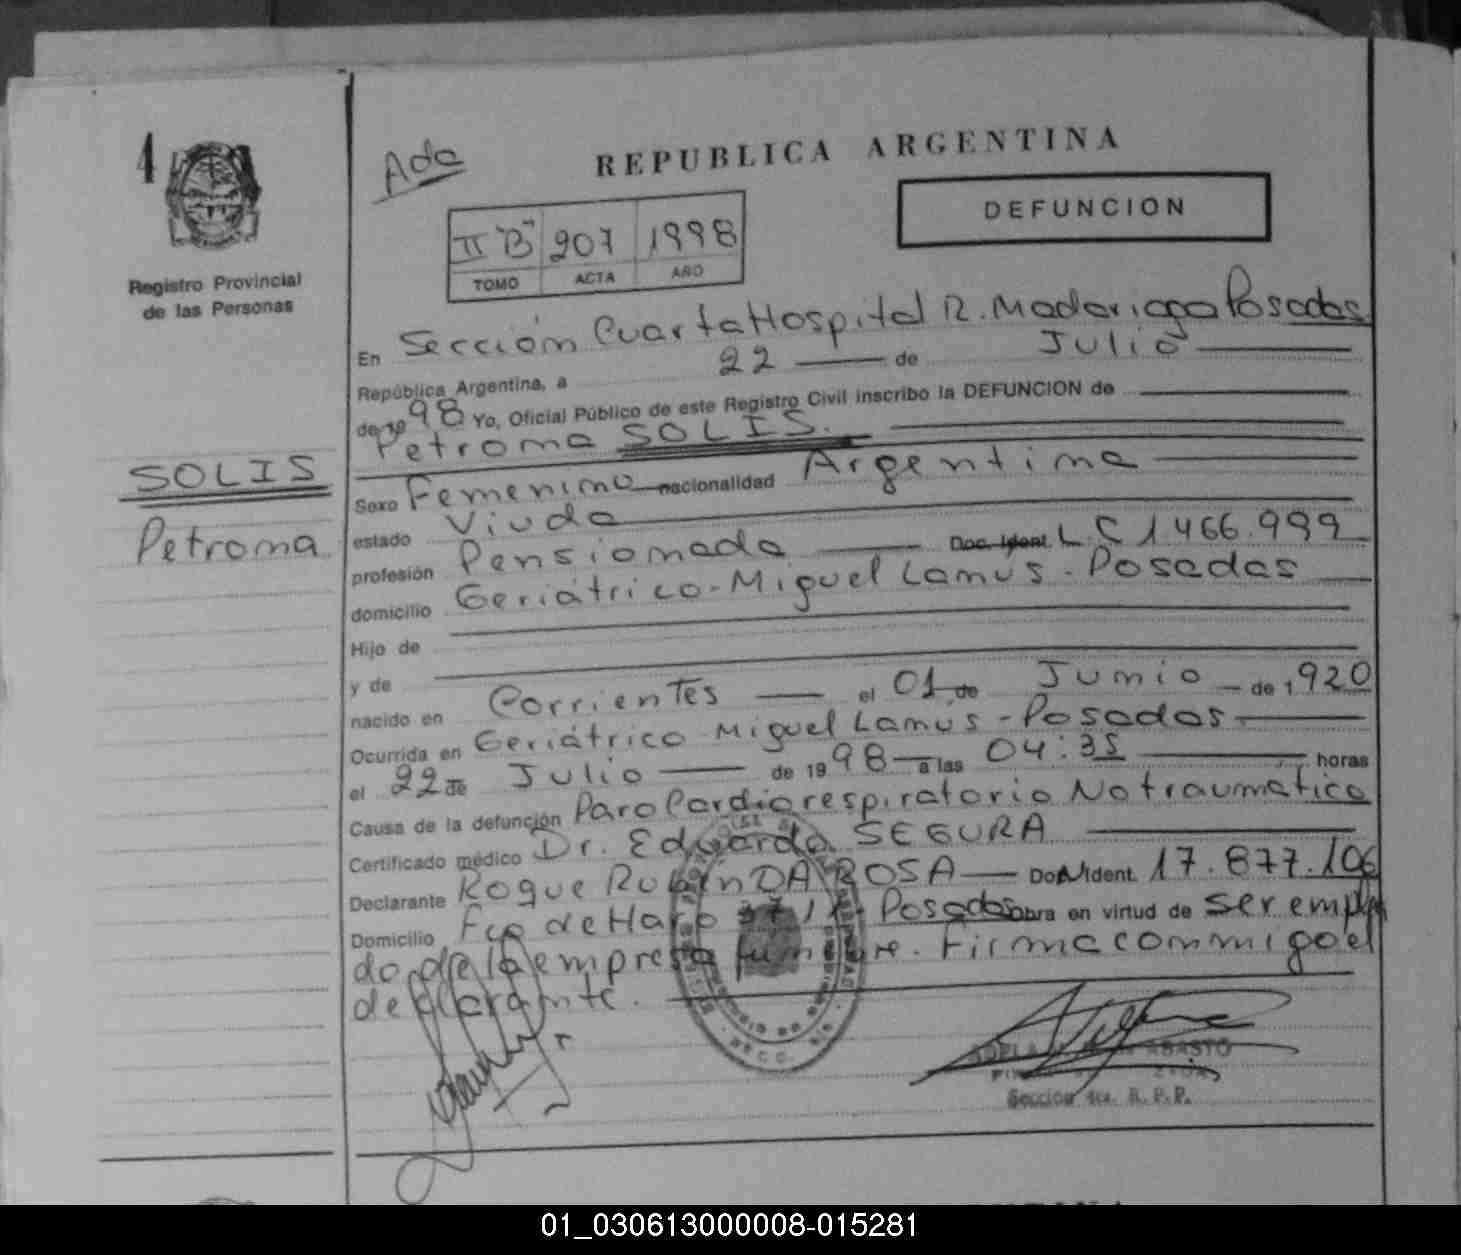 4
Registro Provincial
de las Personas
SOLIS
Petrona
Ada
REPUBLICA ARGENTINA
DEFUNCION
II "B" 207 1998
TOMO ACTA AÑO
En Sección Cuarta Hospital R. Madariaga Posadas
República Argentina, a 22 de Julio
de 19 98 Yo, Oficial Público de este Registro Civil inscribo la DEFUNCION de
Petrona SOLIS.
Sexo Femenino nacionalidad Argentina
estado Viuda
profesión Pensionada Doc. Ident. L.C 1.466.999
domicilio Geriátrico-Miguel Lanus - Posadas
Hijo de
y de
nacido en Corrientes el 01 de Junio de 1.920
Ocurrida en Geriátrico Miguel Lanús - Posadas
el 22 de Julio de 19 98 a las 04:35 horas
Causa de la defunción Paro Cardiorespiratorio No traumatico
Certificado médico Dr. Eduardo SEGURA
Declarante Roque Rubén DA ROSA Ident. 17.877.106
Domicilio Fco de Haro Posadas obra en virtud de ser emplea
do de la empresa funebre. Firma conmigo el
declarante.
ABASTO
Sección 4ta. R. P. P.
01_030613000008-015281